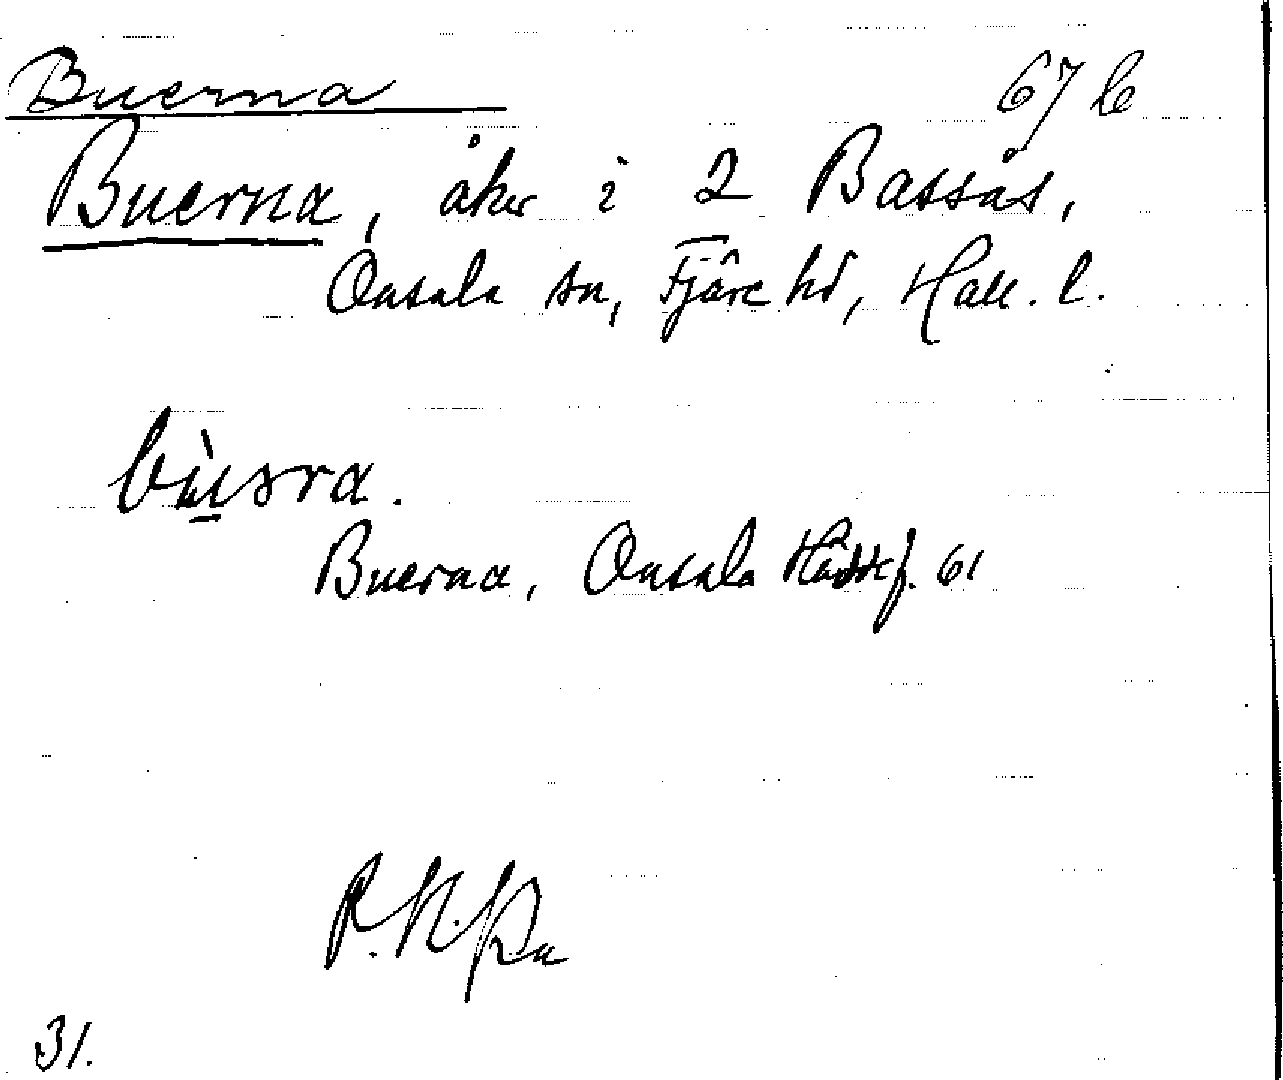 Buerna 67 b
Buerna, åker i 2 Bassås,
Onsala sn, Fjäre hd, Hall. l.
bùsra.
Buerna, Onsala
61
31.